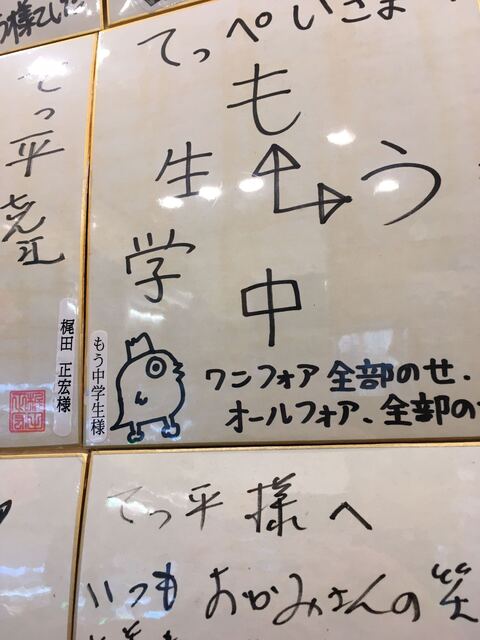 てっぺいさま
も
う
中
学
生
ワニフォア 全部のせ.
オールフォア、全部の
もう中学生様
てっ平
梶田 正宏様
てっ平様へ
いつも おかみさんの笑